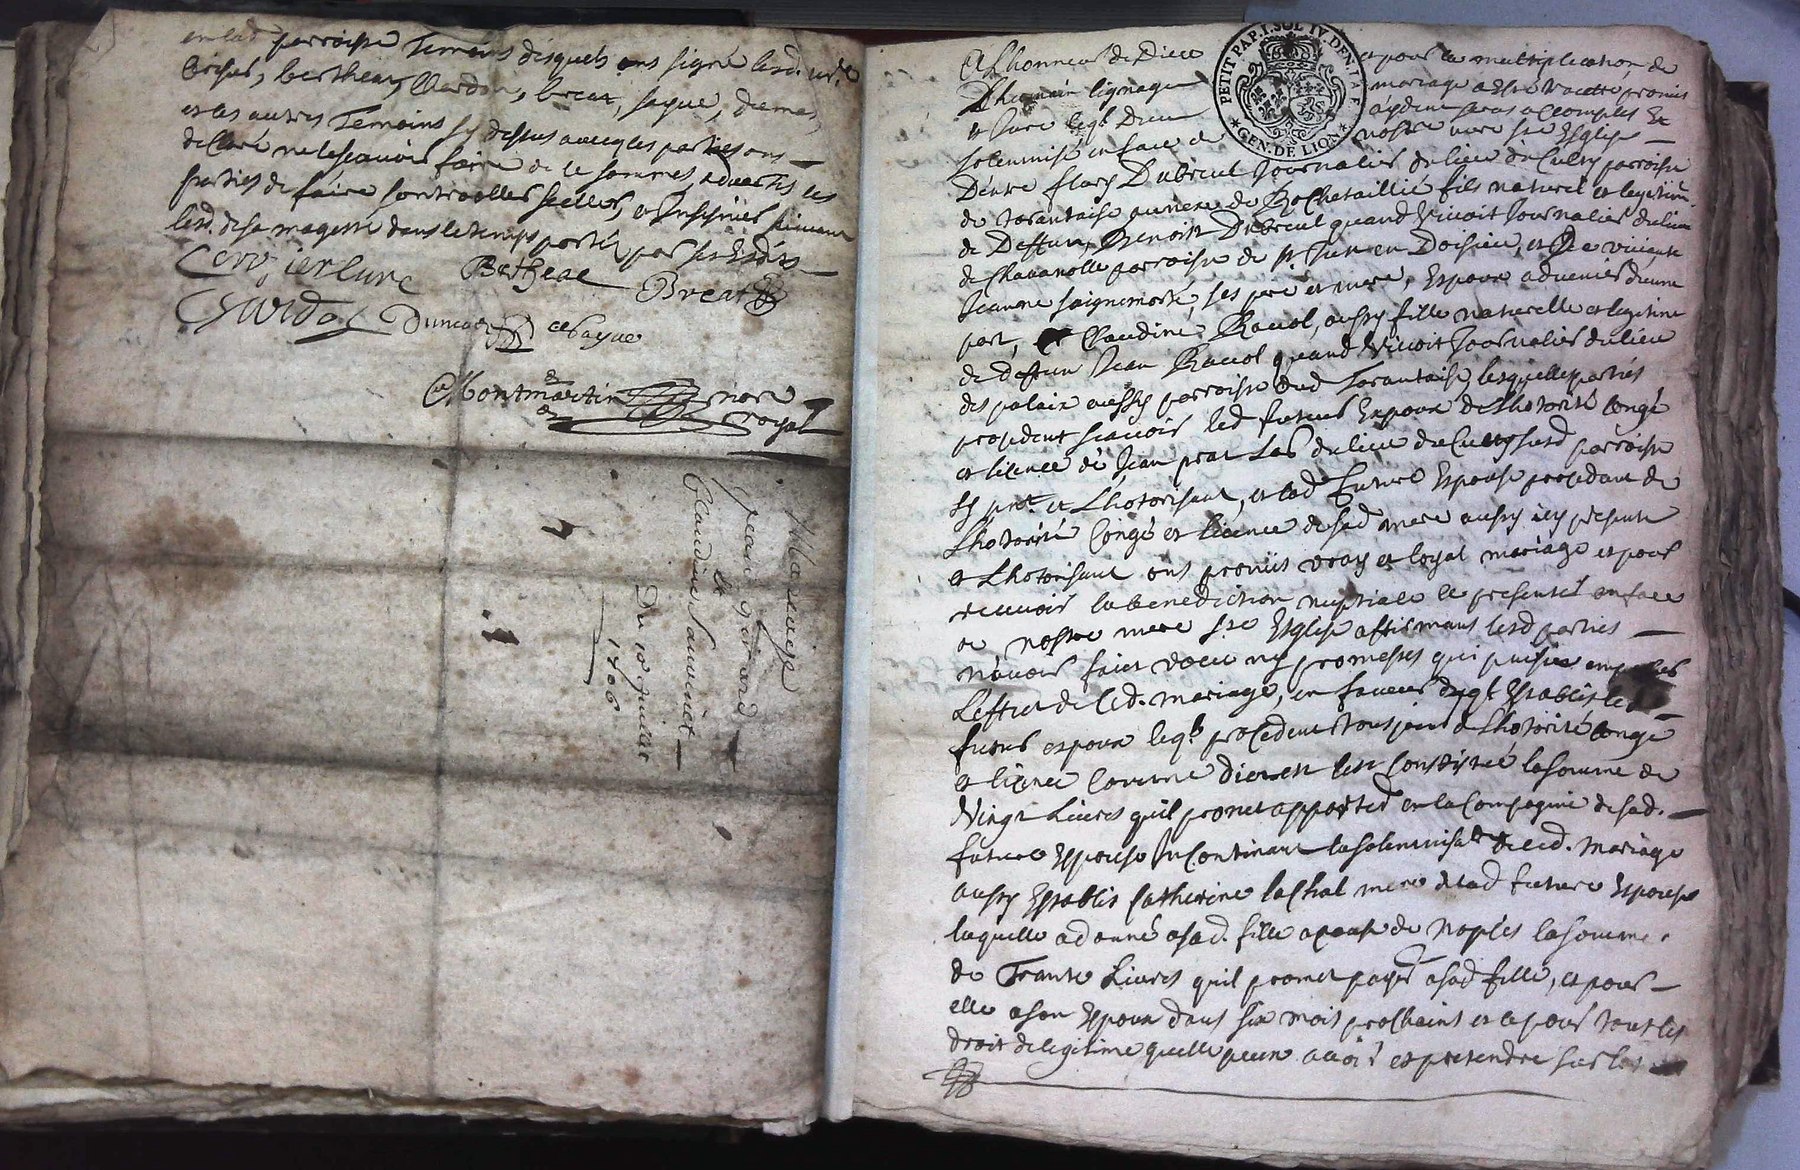 en lad parroisse Temoins desquels ons signé lesd.
Berthear, Chardon, breat, sayue, dumas,
et les autres Temoins sy dessus avecq les parties ons
declaré ne le scavoir faire de ce sommes, advertis les
parties de faire controoller sceller, et Insinuer suivant
lesd. de sa magesté dans le temps porté par ses Edits
Berthear
Breat
Chardon
sayue
Montmartin
notre
royal
Mariage
Jean girard
et
Claudine Sauvinet
Du 18 juillet
1706
PETIT PAP. 1. SOL IV DEN. LA F.
GEN. DE LION
A Lhonneur de Dieu et pour la multiplication de
Lhumain lignage mariage a esté traitté promis
et Jure accomplis Et
solemnisé en face de nostre mere ste Esglise
Dentre fleury Dubreul Journalier du lieu de parroisse
de tarantaise annexe de Rochetaillié fils naturel et legitime
de Deffunt Benoist Dubreul quand Vivoit Journalier du lieu
de Chavanolle parroisse de st Just en Doisieu, et de vivante
Jeanne saignemorte, ses pere et mere, Espoux advenir dune
part, et Claudine Ravol, aussy fille naturelle et legitime
de deffun Jean Ravol quand Vivoit Journalier du lieu
des palais aussy parroisse dud Tarantaise, lesquelle parties
procedent scavoir led futeur Espoux de Lhotorité Congé
et licence de Jean prat du lieu du surd parroisse
sy pnt et Lhotorisant, et lad future Espouse procedant de
Lhotorité Congé et licence de sad mere aussy icy presente
et Lhotorisant ont promis vray et loyal mariage et pour
recevoir la benediction nuptiale se presenter en face
de nostre mere ste Esglise affirmant lesd parties
navoir faict voeu ny promesses qui puisse empecher
Leffect de ced. mariage, en faveur duql Establis led
futeur espoux leql procedent tousjour de Lhotorité Conge
et licence Comme dict est sest Constitué la somme de
Vingt Livres quil promet apporter en la Compagnie de sad.
future Espouse Incontinant la solemnisaon dud. mariage
aussy Establis Catherine lachal mere de lad future Espouse
laquelle a donné a sad. fille a cause de nopces la somme
de Trante Livres quil promet payer a sad fille, et pour
elle a son Espoux dans six mois prochains et ce pour tout les
droit de legitime quelle peux avoir et pretendre sur les